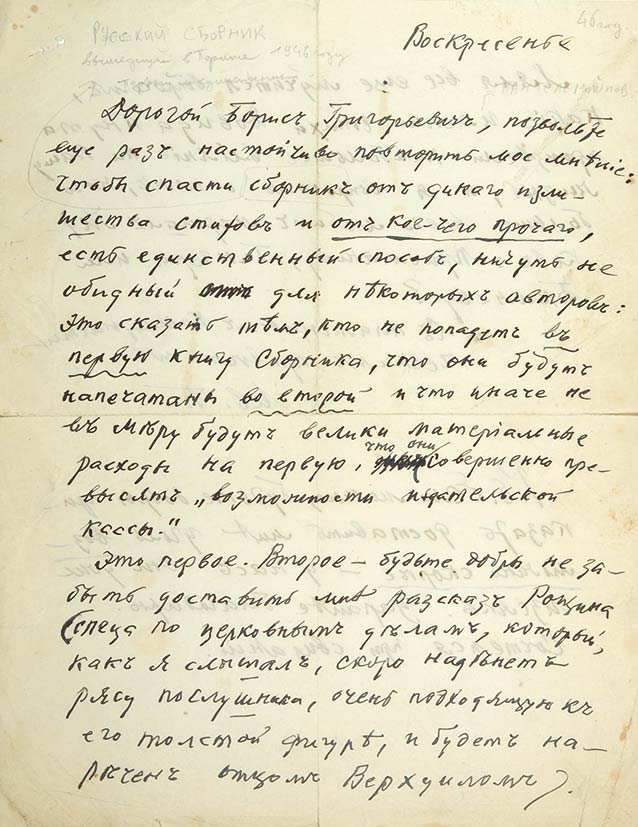 РУССКИЙ СБОРНИК
вышедший в Париже 1946 году
46 год
Воскресенье
Дорогой Борисъ Григорьевичъ, позвольте
еще разъ настойчиво повторить мое мнѣніе:
чтобы спасти сборникъ отъ дикаго изли-
шества стиховъ и отъ кое-чего прочаго,
есть единственный способъ, ничуть не
обидный для нѣкоторыхъ авторовъ:
это сказать тѣмъ, кто не попадетъ въ
первую книгу Сборника, что они будутъ
напечатаны во второй и что иначе не
въ мѣру будутъ велики матеріальные
расходы на первую, что они совершенно пре-
высятъ „возможности издательской
кассы."
Это первое. Второе — будьте добры не за-
быть доставить мнѣ разсказ Рощина
(спеца по церковнымъ дѣламъ, который,
какъ я слышалъ, скоро надѣнетъ
рясу послушника, очень подходящую къ
его толстой фигурѣ, и будетъ на-
реченъ отцомъ Верхуиломъ).